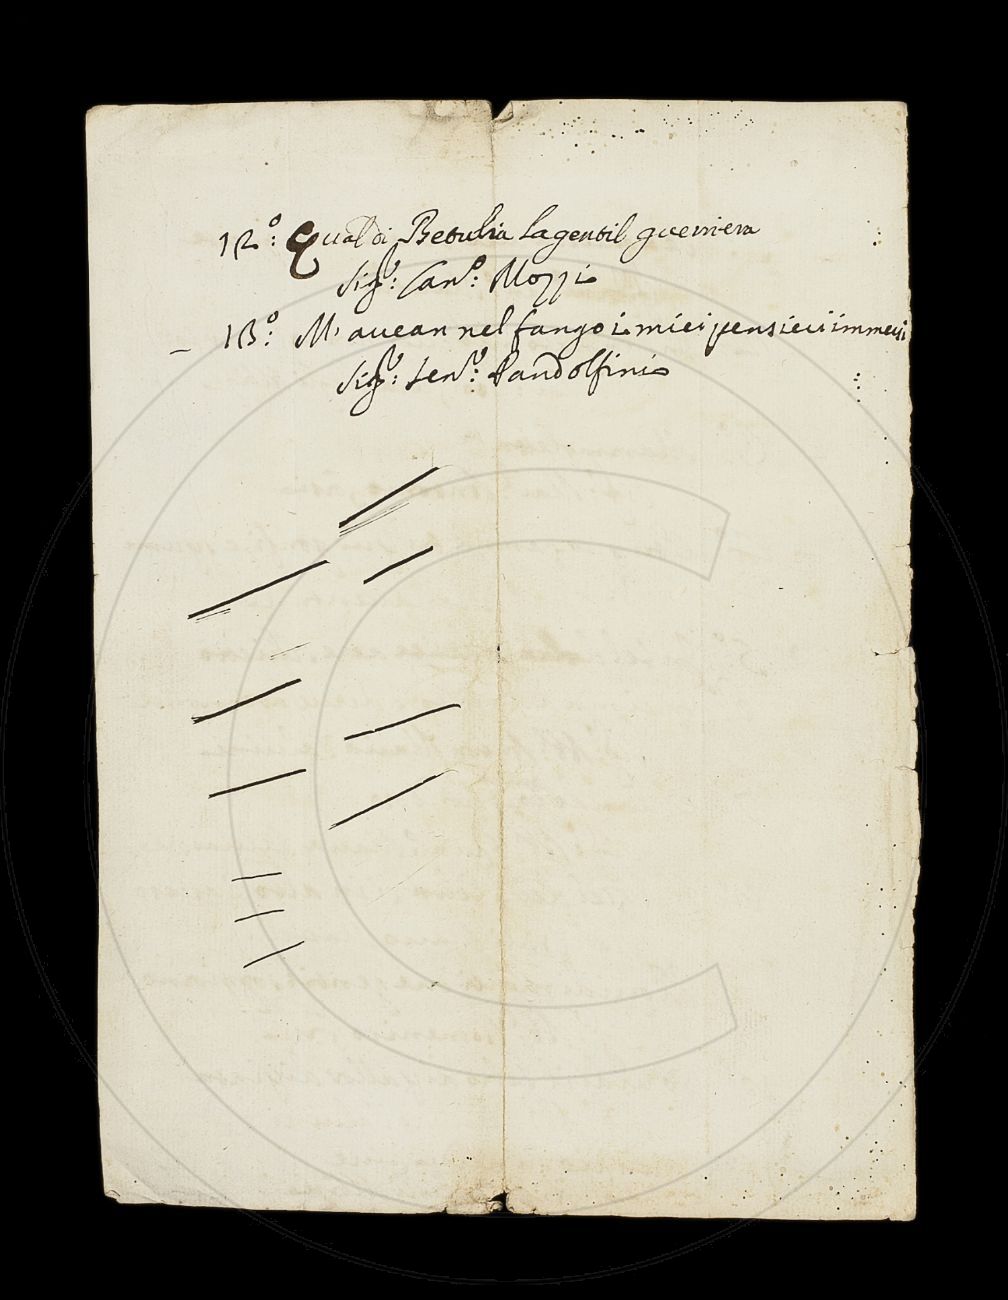 12.º: Qual di Betulia la gentil guerriera
Sig.r: Can.º: Mozzi
13.º: M' avean nel fango i miei pensieri immersi
Sig.r: Sen.º: Pandolfini